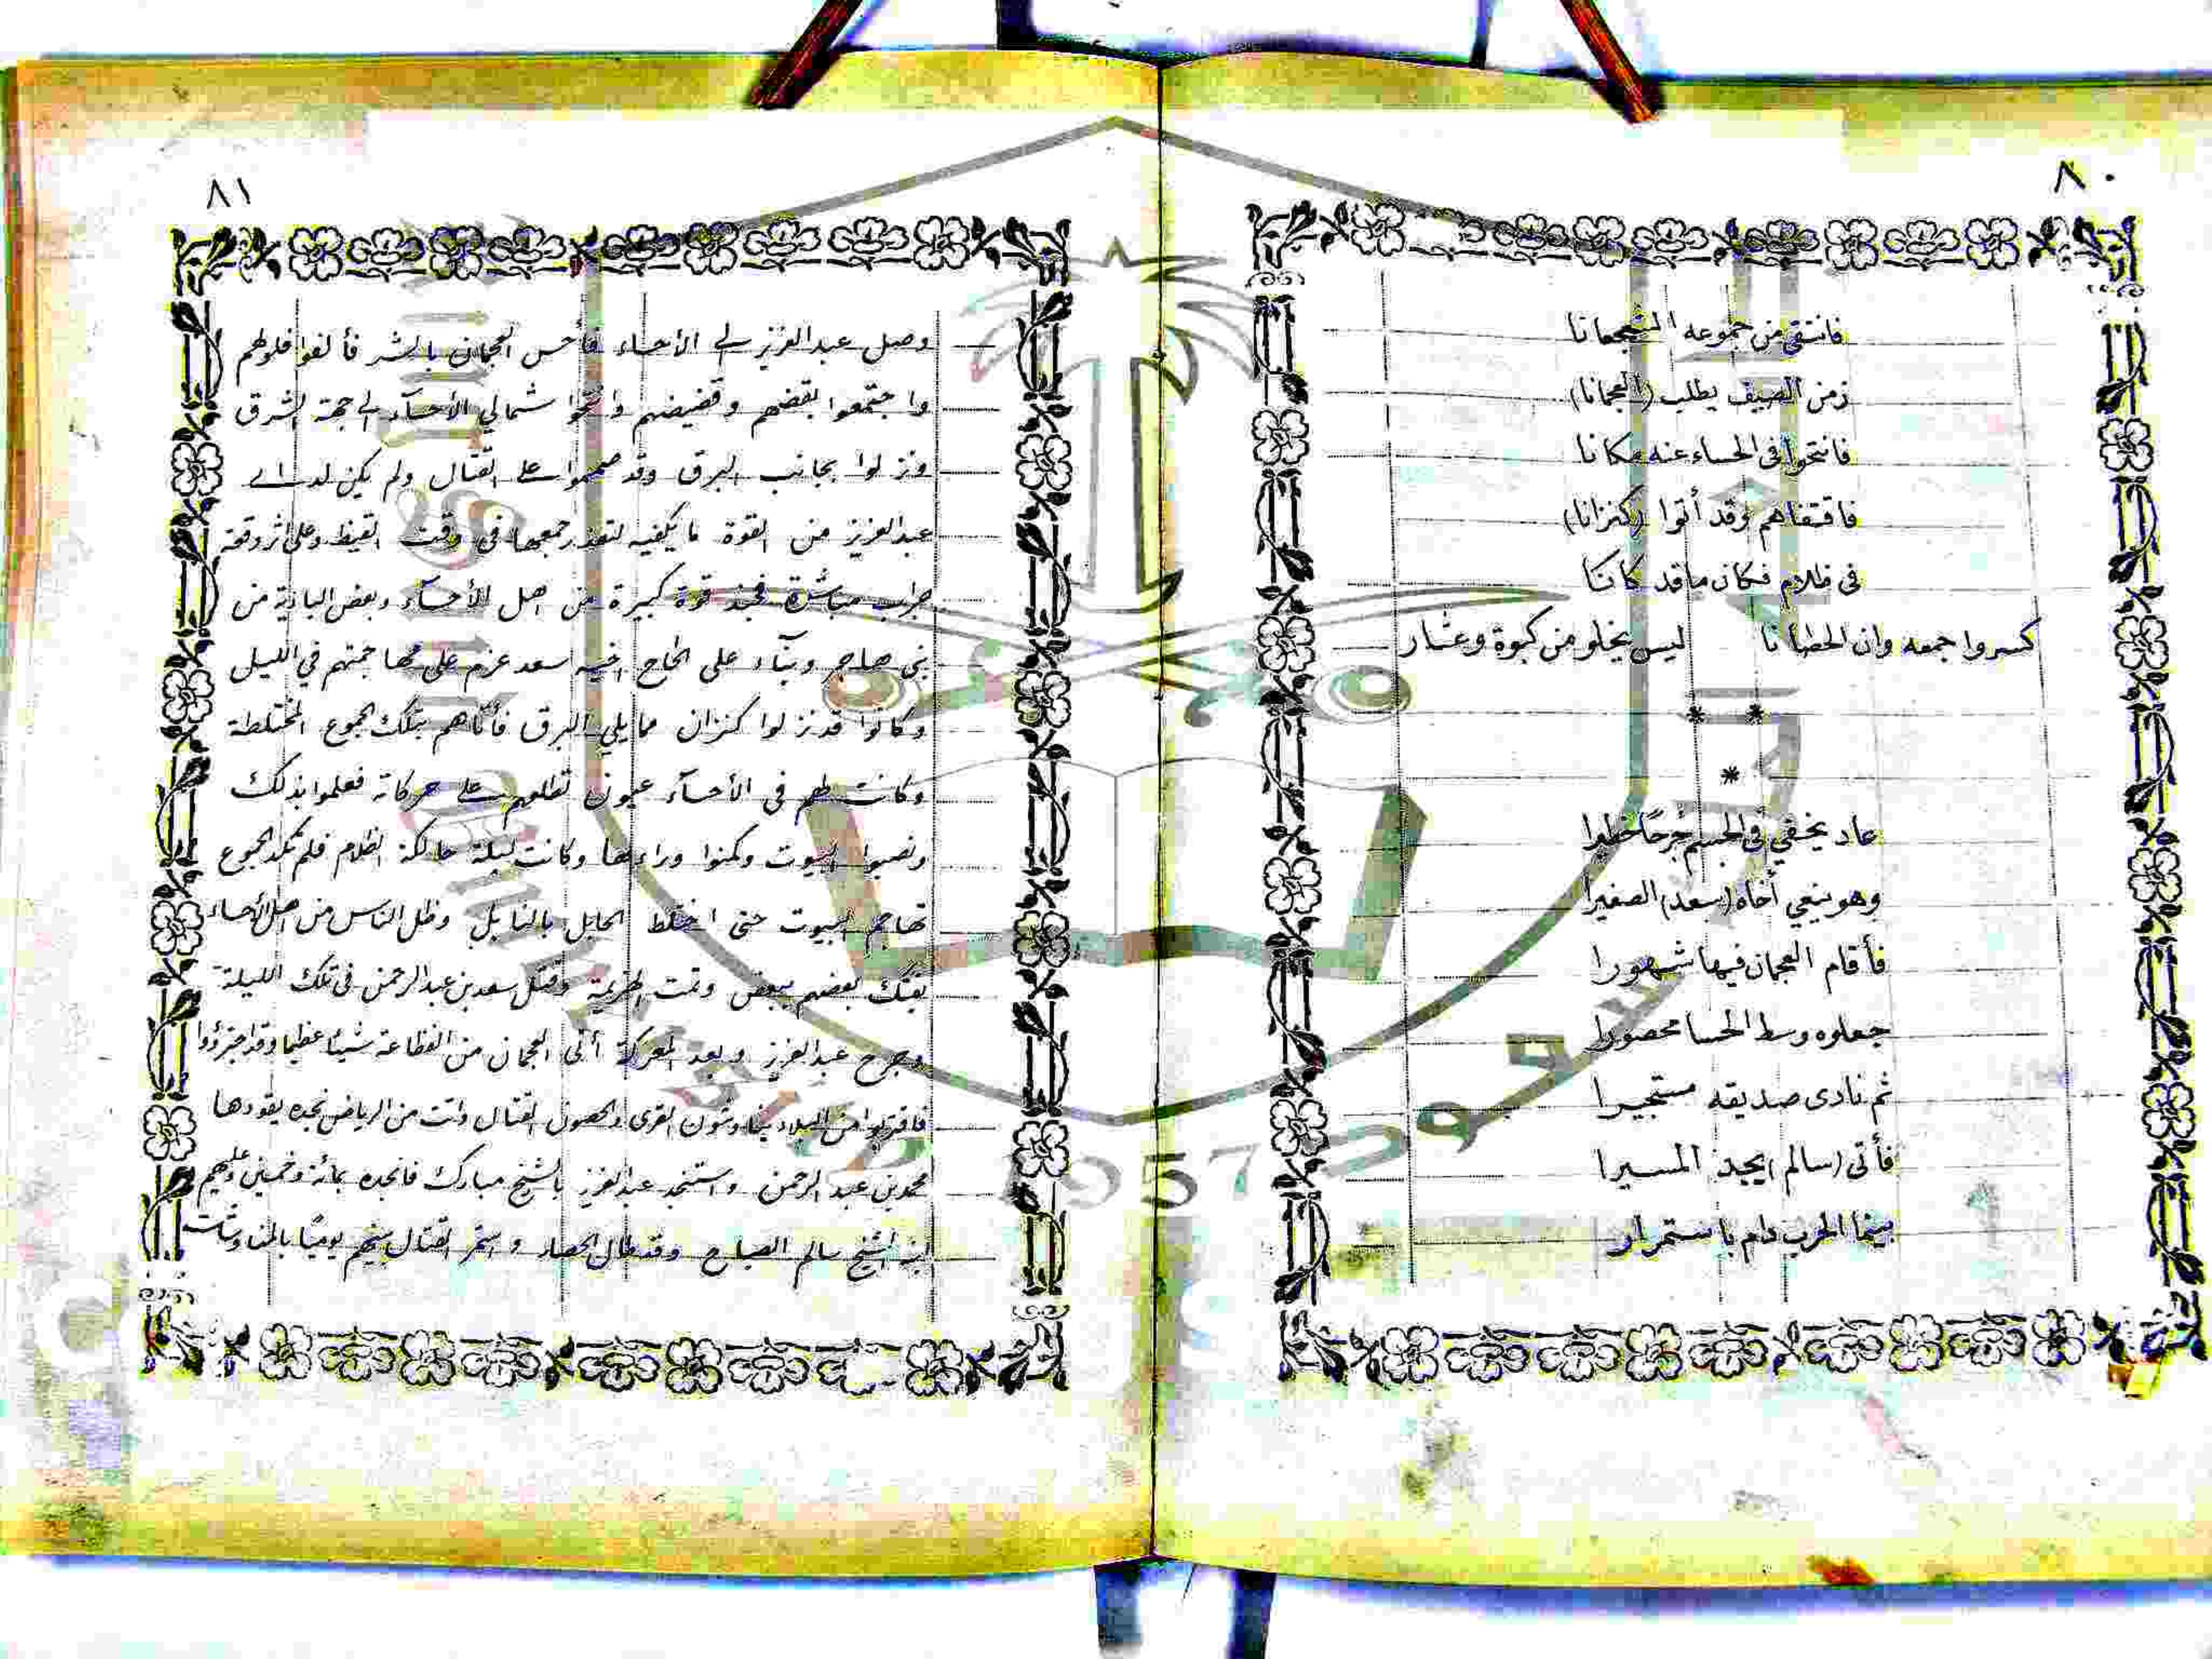 ٨٠
فانتقى من جموعه الشجعانا
زمن الصيف يطلب (العجمانا)
فانتحوا في الحساء عنه مكانا
فاقتفاهم وقد أتوا (كنزانا)
في ظلام فكان ما قد كانا
كسروا جمعه وان الحصانا ليس يخلو من كبوة وعثار
* *
*
عاد يخفي في الجسم جُرحًا خطيرا
وهو ينعي أخاه (سعد) الصغيرا
فأقام العجمان فيها شهورا
جعلوه وسط الحسا محصورا
ثم نادى صديقه مستجيرا
فأتى (سالم) يجد المسيرا
بينما الحرب دام باستمرار
٨١
وصل عبد العزيز إلى الأحساء فأحس العجمان بالشر فألفوا فلولهم
واجتمعوا بقضهم وقضيضهم وانتحوا شمالي الأحسآء إلى جهة الشرق
ونزلوا بجانب البرق وقد صمموا على القتال ولم يكن لدى
عبد العزيز من القوة ما يكفيه لتعذر جمعها في وقت القيظ وعلى اثر وقعة
جراب مباشرة فجند قوة كبيرة من اهل الأحسآء وبعض البادية من
بني هاجر وبنآء على الحاح اخيه سعد عزم على مهاجمتهم في الليل
وكانوا قد نزلوا كنزان مما يلي البرق فأتاهم بتلك الجموع المختلطة
وكانت لهم في الأحسآء عيون تطلعهم على حركاته فعلموا بذلك
ونصبوا البيوت وكمنوا وراءها وكانت ليلة حالكة الظلام فلم تكد الجموع
تهاجم البيوت حتى اختلط الحابل بالنابل وظل الناس من اهل الأحساء
يفتك بعضهم ببعض وتمت الهزيمة وقتل سعد بن عبد الرحمن في تلك الليلة
وجرح عبد العزيز وبعد المعركة أتى العجمان من الفظاعة شيئا عظيما وقد اجترؤوا
فاقتربوا من البلاد يناوشون القرى والحصون القتال واتت من الرياض نجده يقودها
محمد بن عبد الرحمن واستنجد عبد العزيز بالشيخ مبارك فانجده بمائة وخمسين وعليهم
ابن الشيخ سالم الصباح وقد طال الحصار واستمر القتال بينهم يوميًا بالمناوشات
سعود
1957